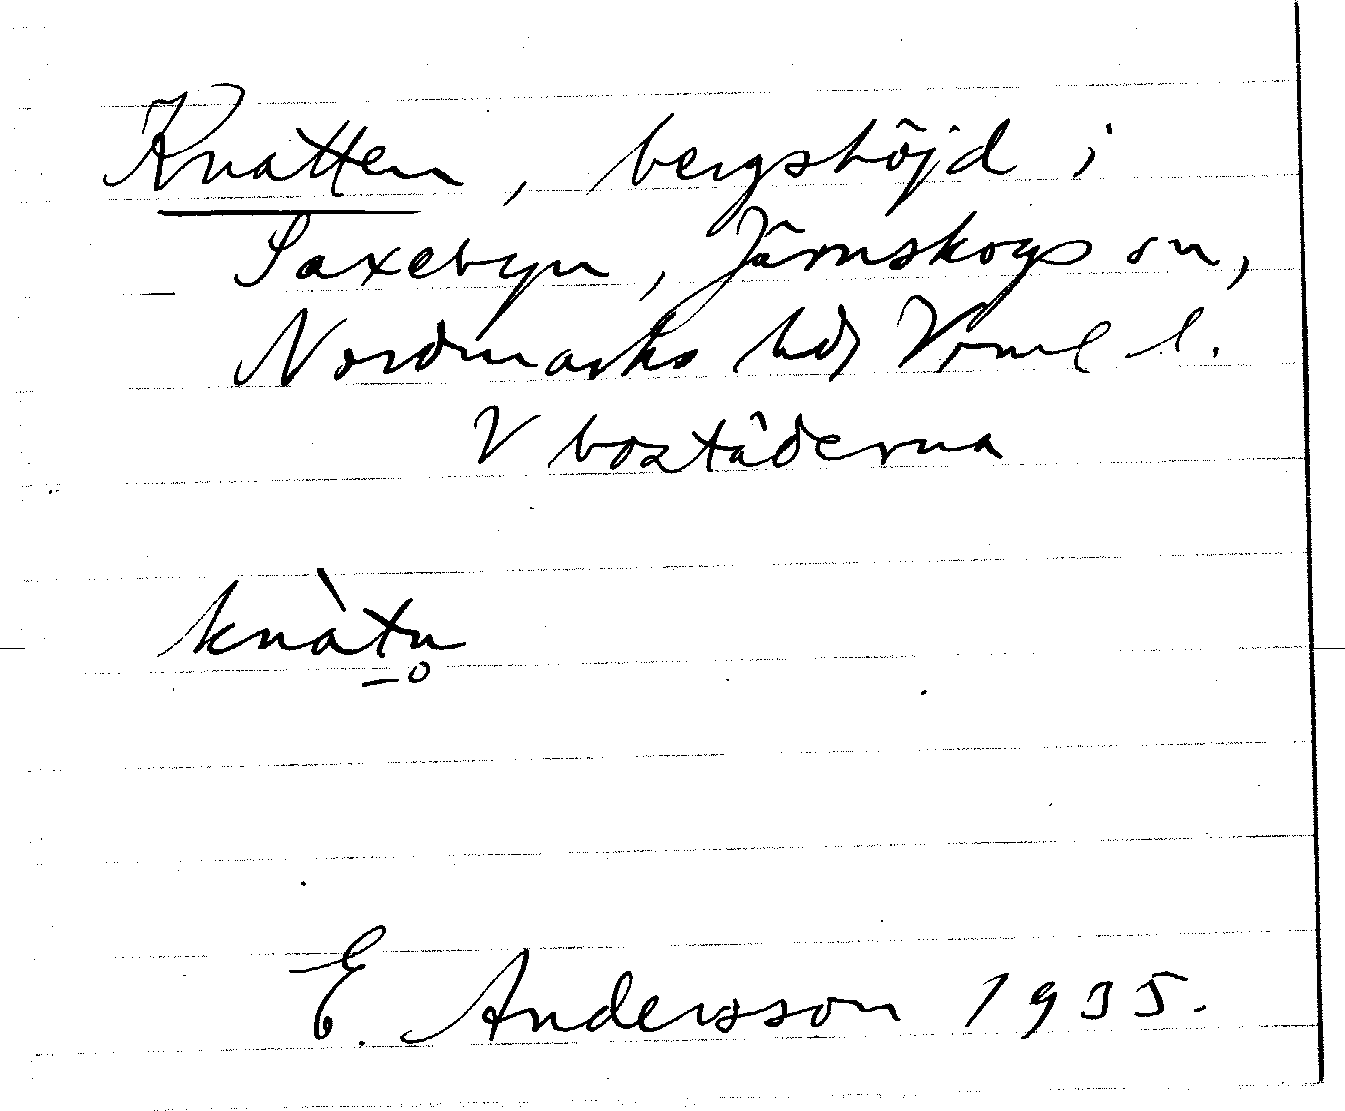 Knatten, bergshöjd i
Saxebyn, Järnskogs sn,
Nordmarks hd, Vrml l.
V bostäderna
knàt̠n̥
E. Andersson 1935.